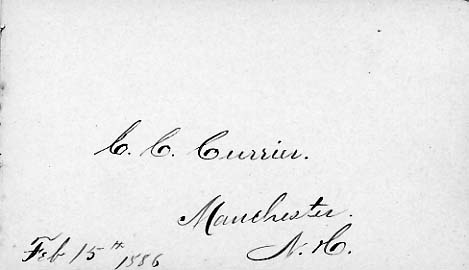 C. C. Currier.
Manchester.
N. H.
Feb 15th 1886